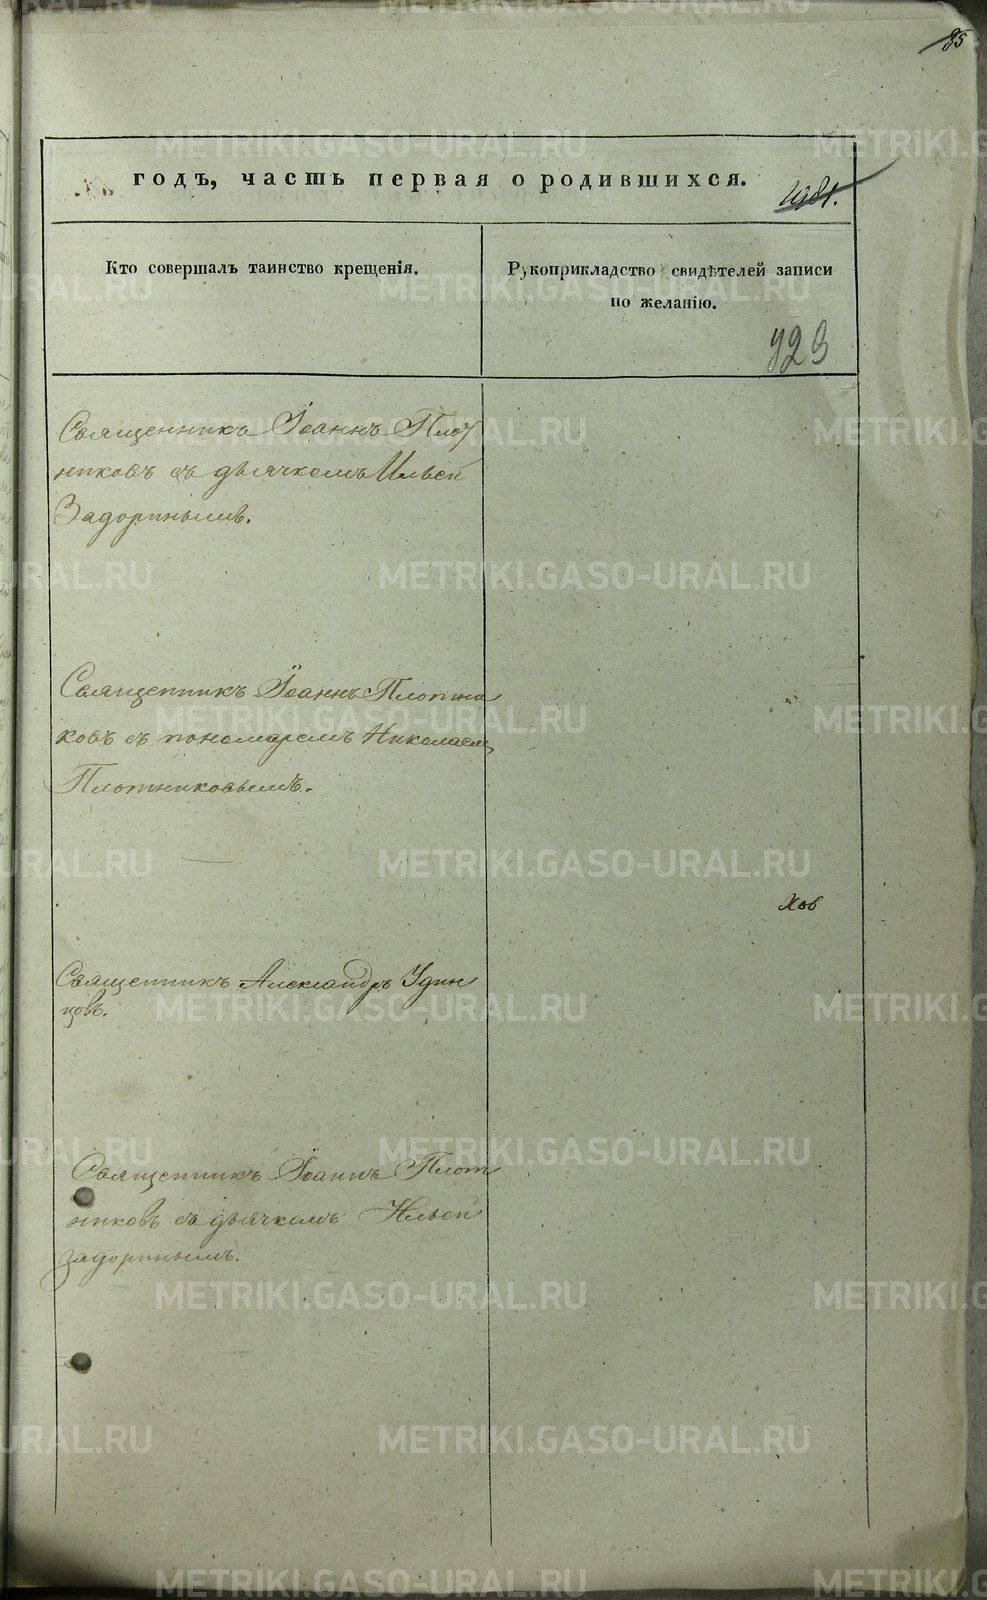 85
годъ, часть первая о родившихся.
Кто совершалъ таинство крещенія.
Рукоприкладство свидѣтелей записи
по желанію.
Священникъ Іоаннъ Плот
никовъ съ дьячкомъ Ильей
Задоринымъ.
Священникъ Іоаннъ Плотни
ковъ съ пономаремъ Николаемъ
Плотниковымъ.
Священникъ Александръ Удин
цовъ.
Священникъ Іоаннъ Плот
никовъ съ дьячкомъ Ильей
Задоринымъ.
METRIKI.GASO-URAL.RU